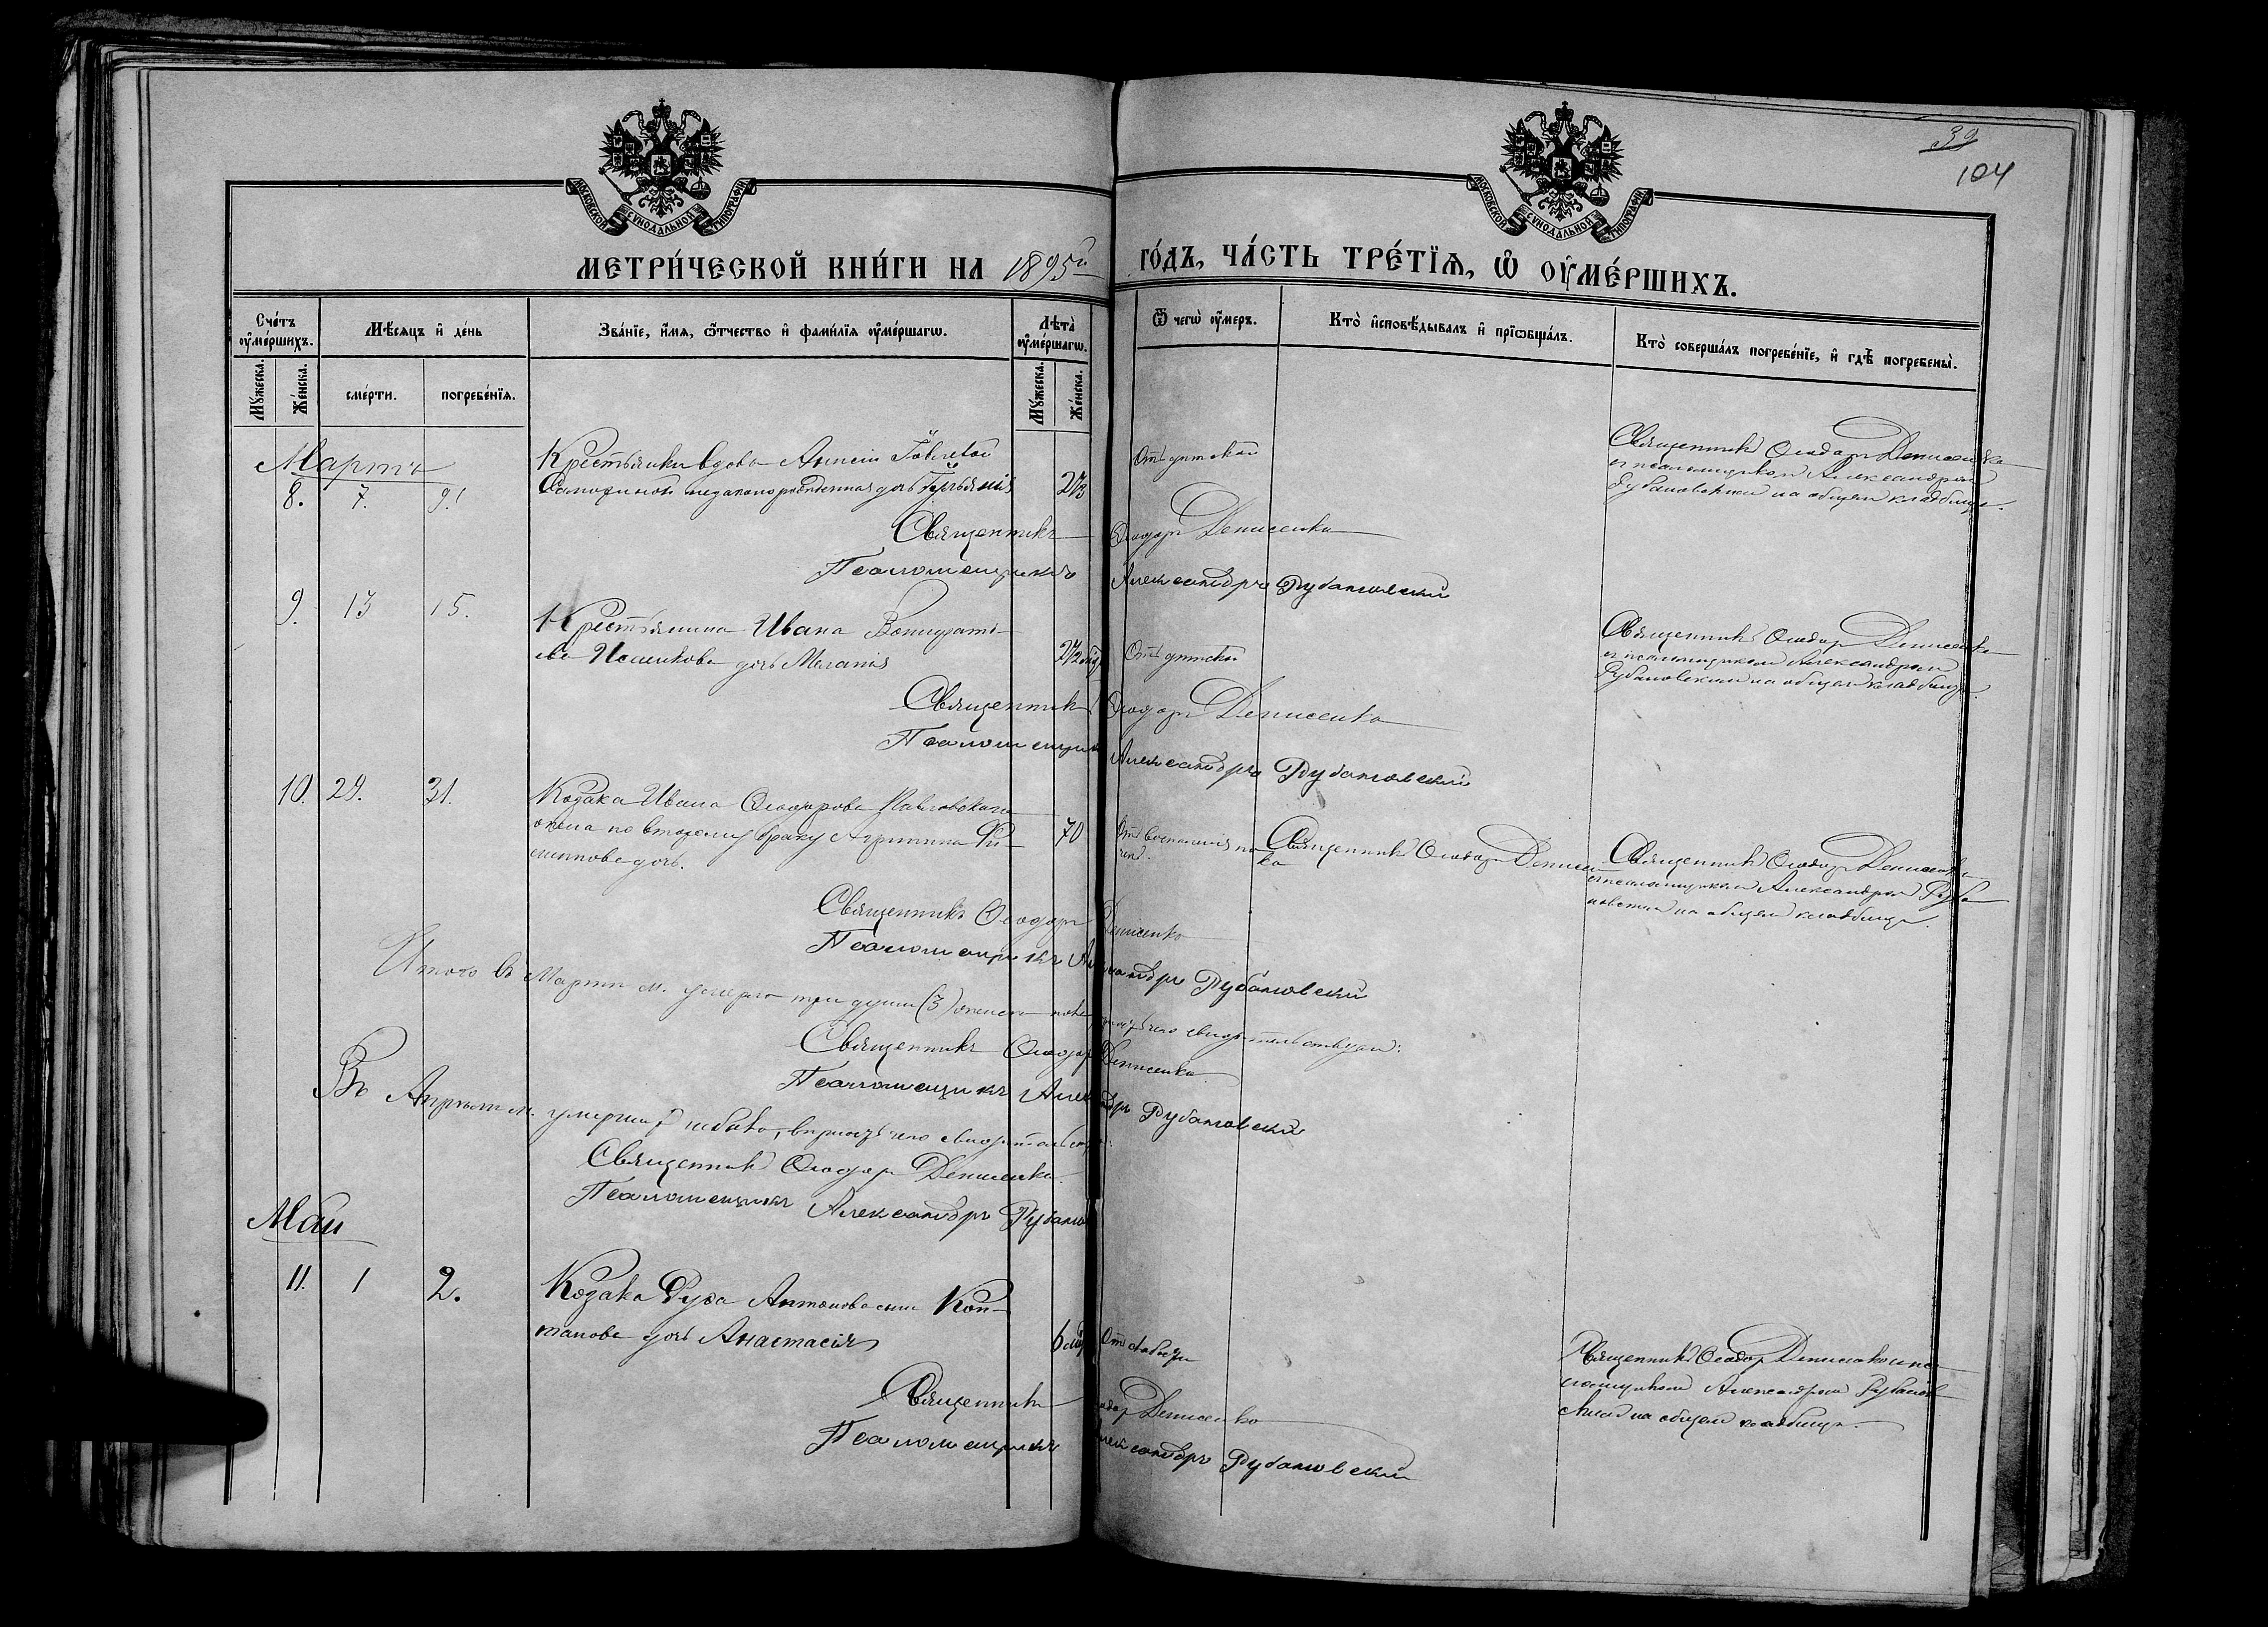 39
104
МОСКОВСКОЙ СѴНОДАЛЬНОЙ ТИПОГРАФІИ
МОСКОВСКОЙ СѴНОДАЛЬНОЙ ТИПОГРАФІИ
МЕТРИ́ЧЕСКОЙ КНИ́ГИ НА 1895й ГО́ДЪ, ЧА́СТЬ ТРЕ́ТЇѦ, Ѡ ОУ҆МЕ́РШИХЪ.
Сче́тъ оу҆ме́ршихъ.
Мѣ́сѧцъ и҆ де́нь
Зва́нїе, и҆́мѧ, ѻ҆́тчество и҆ фами́лїѧ оу҆ме́ршагѡ.
Лѣта̀ оу҆ме́ршагѡ.
Ѿ чегѡ̀ оу҆́меръ.
Кто̀ и҆сповѣ́дывалъ и҆ прїѡбща́лъ.
Кто̀ соверша́лъ погребе́нїе, и҆ гдѣ̀ погребены̀.
Мꙋ́жеска.
Же́нска.
сме́рти.
погребе́нїѧ.
Мꙋ́жеска.
Же́нска.
Мартъ
8. 7. 9.
Крестьянки вдовы
незаконорожденная дочь
Отъ дитской
Священникъ Ѳеодоръ Денисенко
съ псаломщикомъ Александромъ
Рубановскимъ на общемъ кладбищѣ.
Священникъ Ѳеодоръ Денисенко
Псаломщикъ Александръ Рубановский
9. 13 15.
Крестьянина Ивана
дочь Меланія
Отъ дитской
Священникъ Ѳеодоръ Денисенко
съ псаломщикомъ Александромъ
Рубановскимъ на общемъ кладбищѣ.
Священникъ Ѳеодоръ Денисенко
Псаломщикъ Александръ Рубановский
10. 29. 31.
Козака Ивана Ѳеодорова Павловскаго
жена по второму браку Агрипина Фи-
липпова дочь.
70
Отъ воспаленія
Священникъ Ѳеодоръ Денисен-
ко
Священникъ Ѳеодоръ Денисенко
съ псаломщикомъ Александромъ Руба
новскимъ на общемъ кладбищѣ.
Священникъ Ѳеодоръ Денисенко
Псаломщикъ Александръ Рубановский
Итого въ Мартѣ м. умерло три души (3) женска пола свидѣтельствуемъ:
Священникъ Ѳеодоръ Денисенко
Псаломщикъ Александръ Рубановский
Въ Апрѣлѣ м. умершихъ небыло, въ чемъ
Священникъ Ѳеодоръ Денисенко.
Псаломщикъ Александръ Рубанов
Май
11. 1 2.
Козака Антонова сына Коп-
танова дочь Анастасія
6
Отъ слабости
Священникъ Ѳеодоръ Денисенко с пса
ломщикомъ Александромъ Рубанов
скимъ на общемъ кладбищѣ.
Священникъ Ѳеодоръ Денисенко
Псаломщикъ Александръ Рубановский